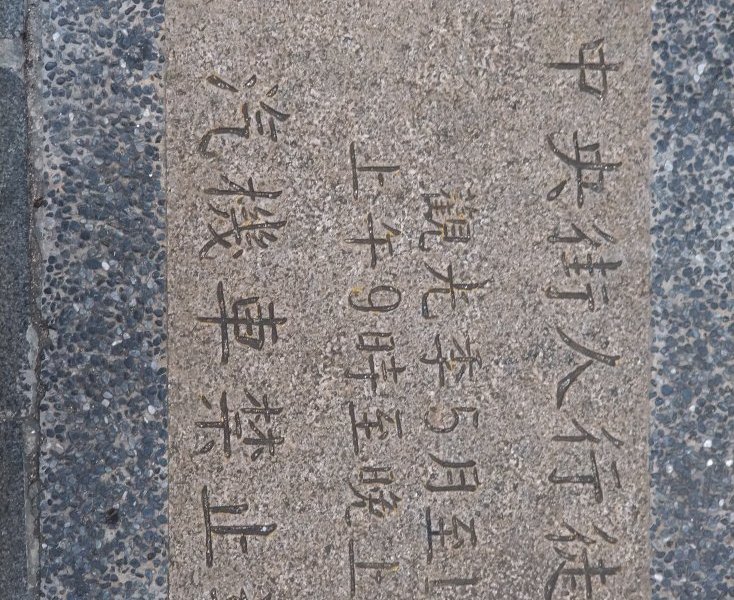 中央街人行徒
觀光季5月至1
上午9時至晚上
汽機車禁止